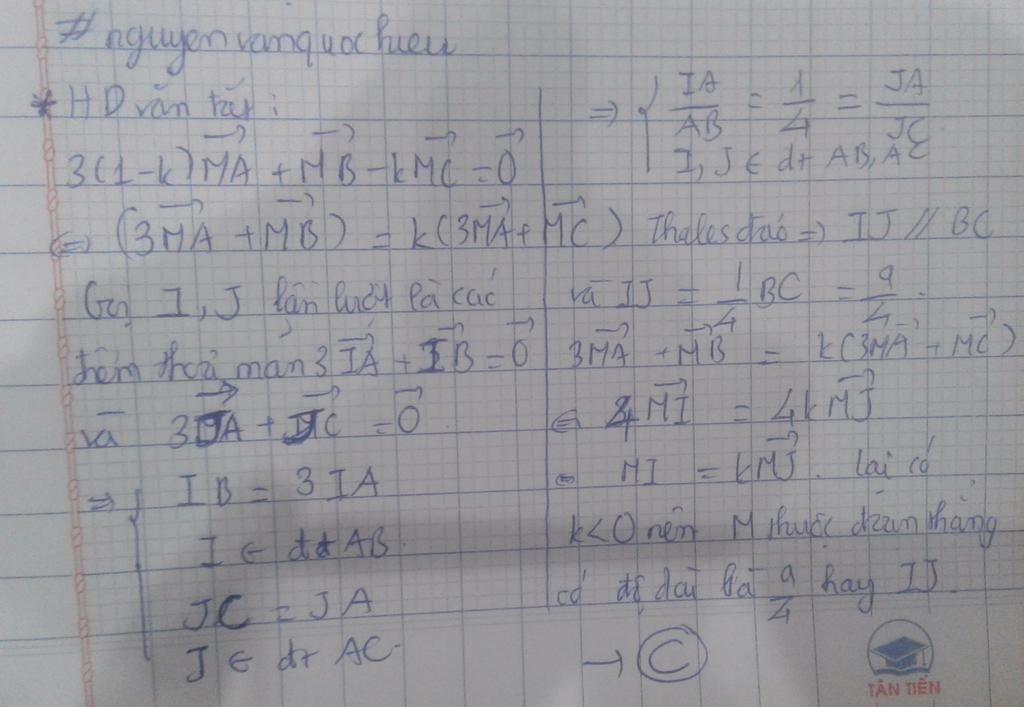 # nguyenvanquochieu
* HD vắn tắt:
3(1-k)\overrightarrow{MA} + \overrightarrow{MB} - k\overrightarrow{MC} = \overrightarrow{0}
⇔ (3\overrightarrow{MA} + \overrightarrow{MB}) = k(3\overrightarrow{MA} + \overrightarrow{MC})
Gọi I, J lần lượt là các
điểm thoả mãn 3\overrightarrow{IA} + \overrightarrow{IB} = \overrightarrow{0}
và 3\overrightarrow{JA} + \overrightarrow{JC} = \overrightarrow{0}
⇒ { IB = 3IA
I ∈ đt AB.
JC = JA
J ∈ đt AC.
⇒ { IA/AB = 1/4 = JA/JC
I, J ∈ đt AB, AC
Thales đảo ⇒ IJ // BC
và IJ = 1/4 BC = a/4.
3\overrightarrow{MA} + \overrightarrow{MB} = k(3\overrightarrow{MA} + \overrightarrow{MC})
⇔ 4\overrightarrow{MI} = 4k\overrightarrow{MJ}
⇔ MI = k\overrightarrow{MJ}. Lại có
k<0 nên M thuộc đoạn thẳng
có độ dài là a/4 hay IJ.
→ C
TÂN TIẾN